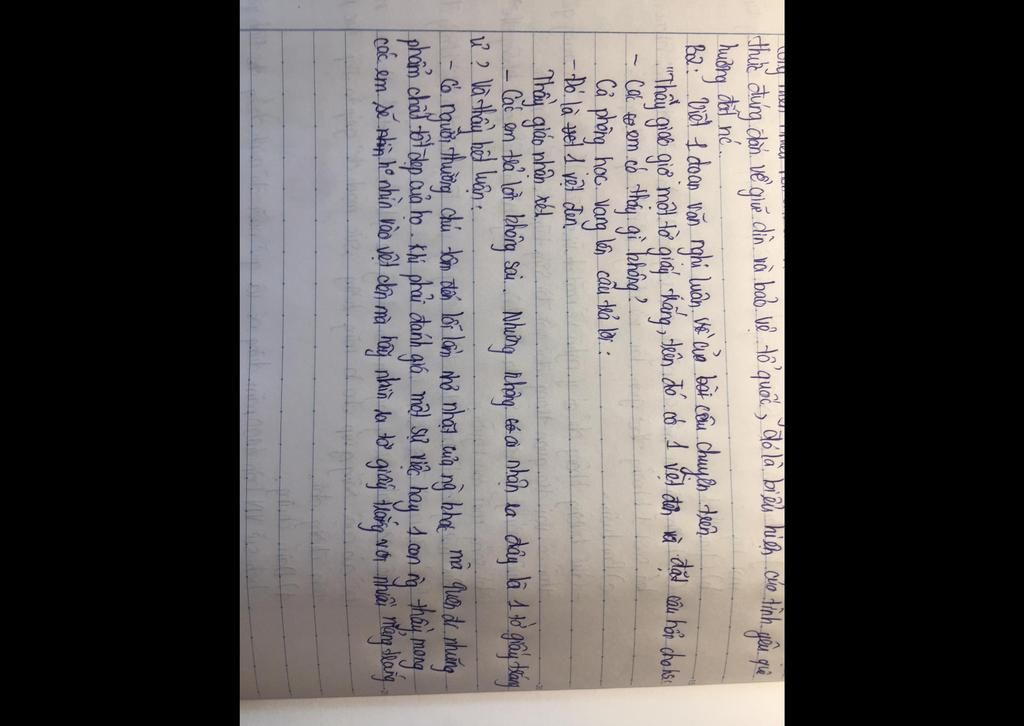 thức đúng đắn về giữ dìn và bảo vệ tổ quốc, đó là biểu hiện của tình yêu quê
hương đất nc.
B2: Viết 1 đoạn văn nghị luận về của bài câu chuyện trên
"Thầy giáo giơ một tờ giấy trắng, trên đó có 1 vệt đen và đặt câu hỏi cho hs:
- Các em có thấy gì không?
Cả phòng học vang lên câu trả lời:
- Đó là 1 vệt đen
Thầy giáo nhận xét
- Các em trả lời không sai. Nhưng không có ai nhận ra đây là 1 tờ giấy trắng
ư? Và thầy kết luận:
- Có người thường chú tâm đến lỗi lầm nhỏ nhặt của ng khác mà quên đi những
phẩm chất tốt đẹp của họ. Khi phải đánh giá một sự việc hay 1 con ng thầy mong
các em sẽ nhìn vào vệt đen mà hãy nhìn ra tờ giấy trắng với nhiều mảng trắng